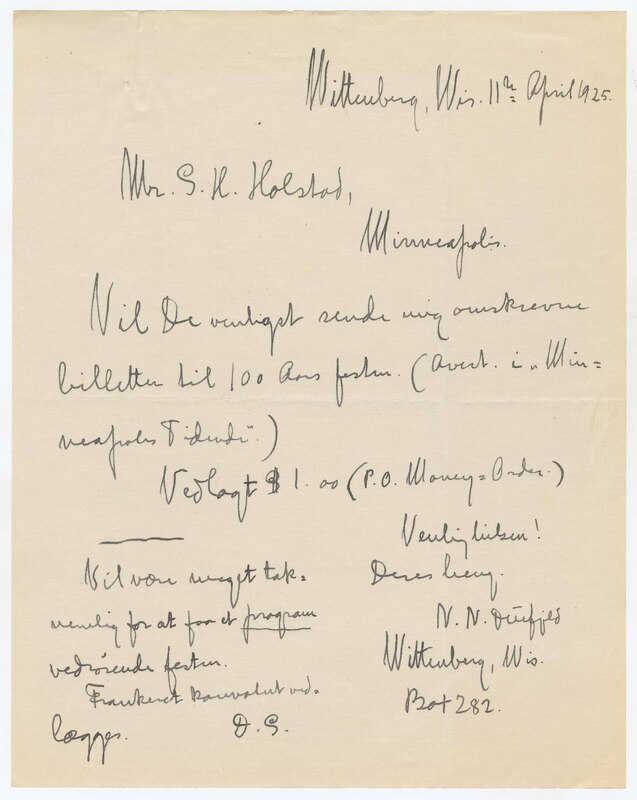 Wittenberg, Wis. 11th April 1925.
Mr. S. H. Holstad,
Minneapolis.
Vil De venligst sende mig omskrevne
billetter til 100 Aars festen. (Avert. i "Min=
neapolis Tidende".)
Vedlagt $1.00 (P.O. Money=Order.)
Venlig hilsen!
Deres
N. N.
Wittenberg, Wis.
Box 282.
Vil være meget tak=
nemlig for at faa et program
vedrørende festen.
Frankeret konvolut ved=
lægges. D. S.